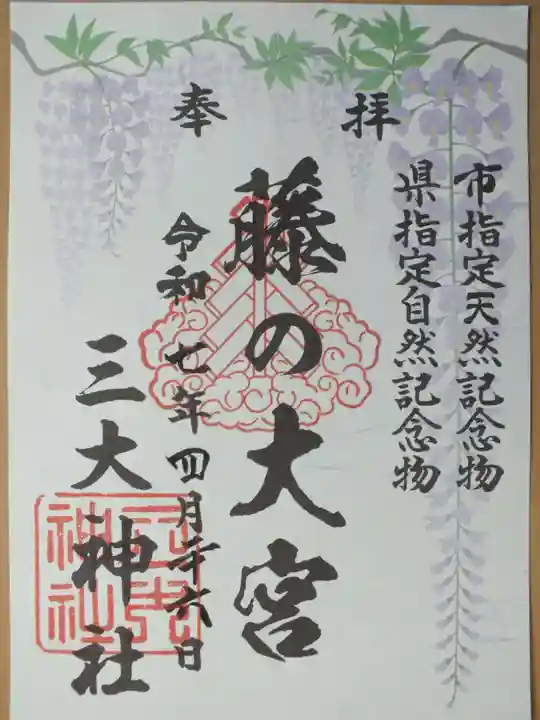 市指定天然記念物
県指定自然記念物
奉拝
藤の大宮
令和七年四月廿六日
三大神社
三大神社